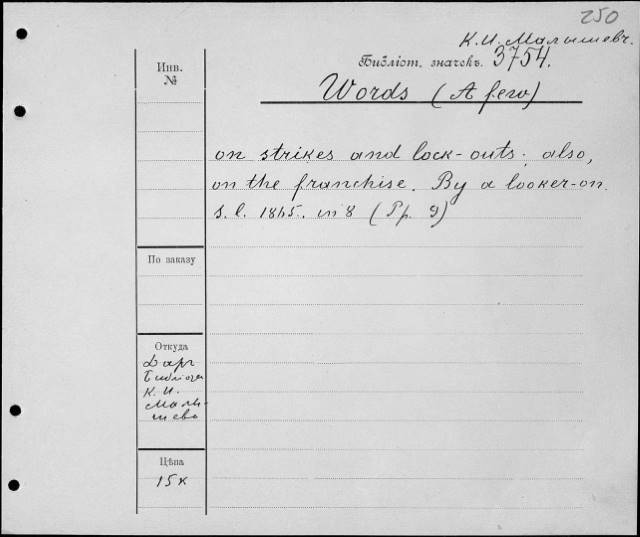 250
К. И. Малышевъ.
Библіот. значекъ. 3754.
Инв.
№
Words (A few)
on strikes and lock-outs; also,
on the franchise. By a looker-on.
s. l. 1865. in 8 (Pp. 9)
По заказу
Откуда
Даръ
Библіотеки
К. И.
Малы-
шева
Цѣна
15 к